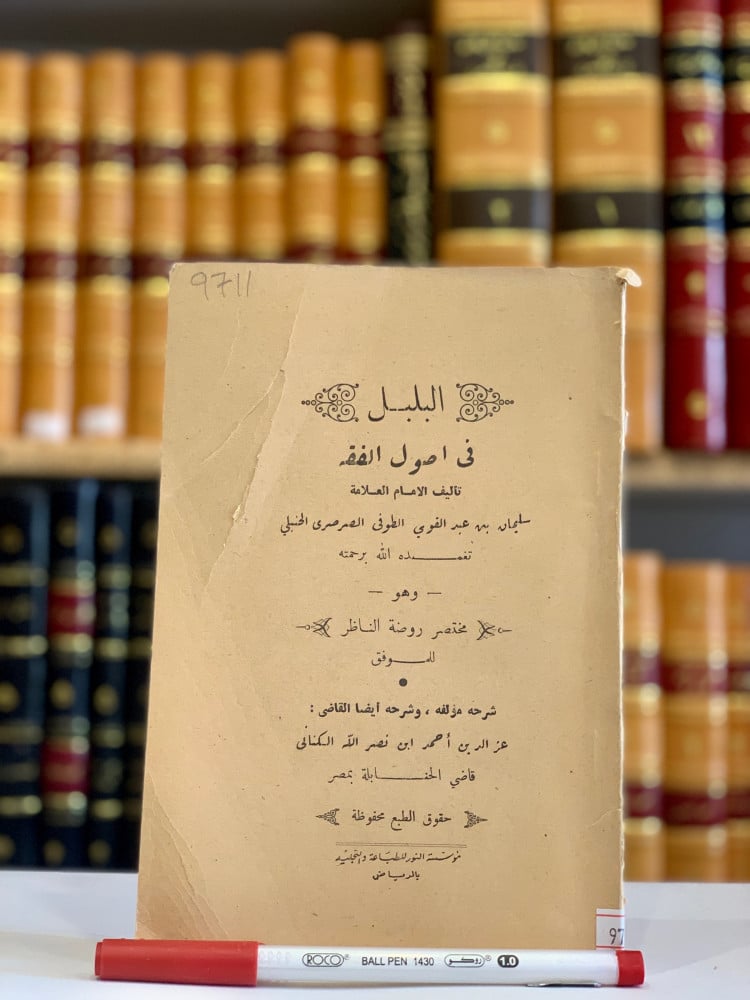 9711
البلبل
فى اصول الفقه
تاليف الامام العلامة
سليمان بن عبد القوي الطوفى الصرصرى الحنبلي
تغمده الله برحمته
— وهو —
مختصر روضة الناظر
للموفق
شرحه مؤلفه ، وشرحه أيضا القاضى :
عز الدين أحمد ابن نصر الله الكنانى
قاضي الحنابلة بمصر
حقوق الطبع محفوظة
مؤسسة النور للطباعة والتجليد
بالرياض
97
ROCO® BALL PEN 1430 روكو® 1.0